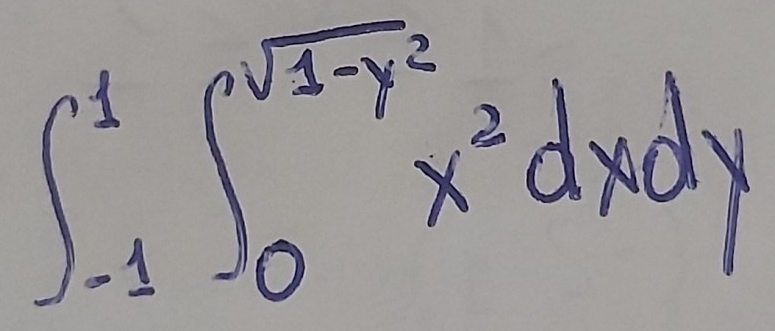 ∫_{-1}^{1} ∫_{0}^{√(1-y²)} x² dx dy